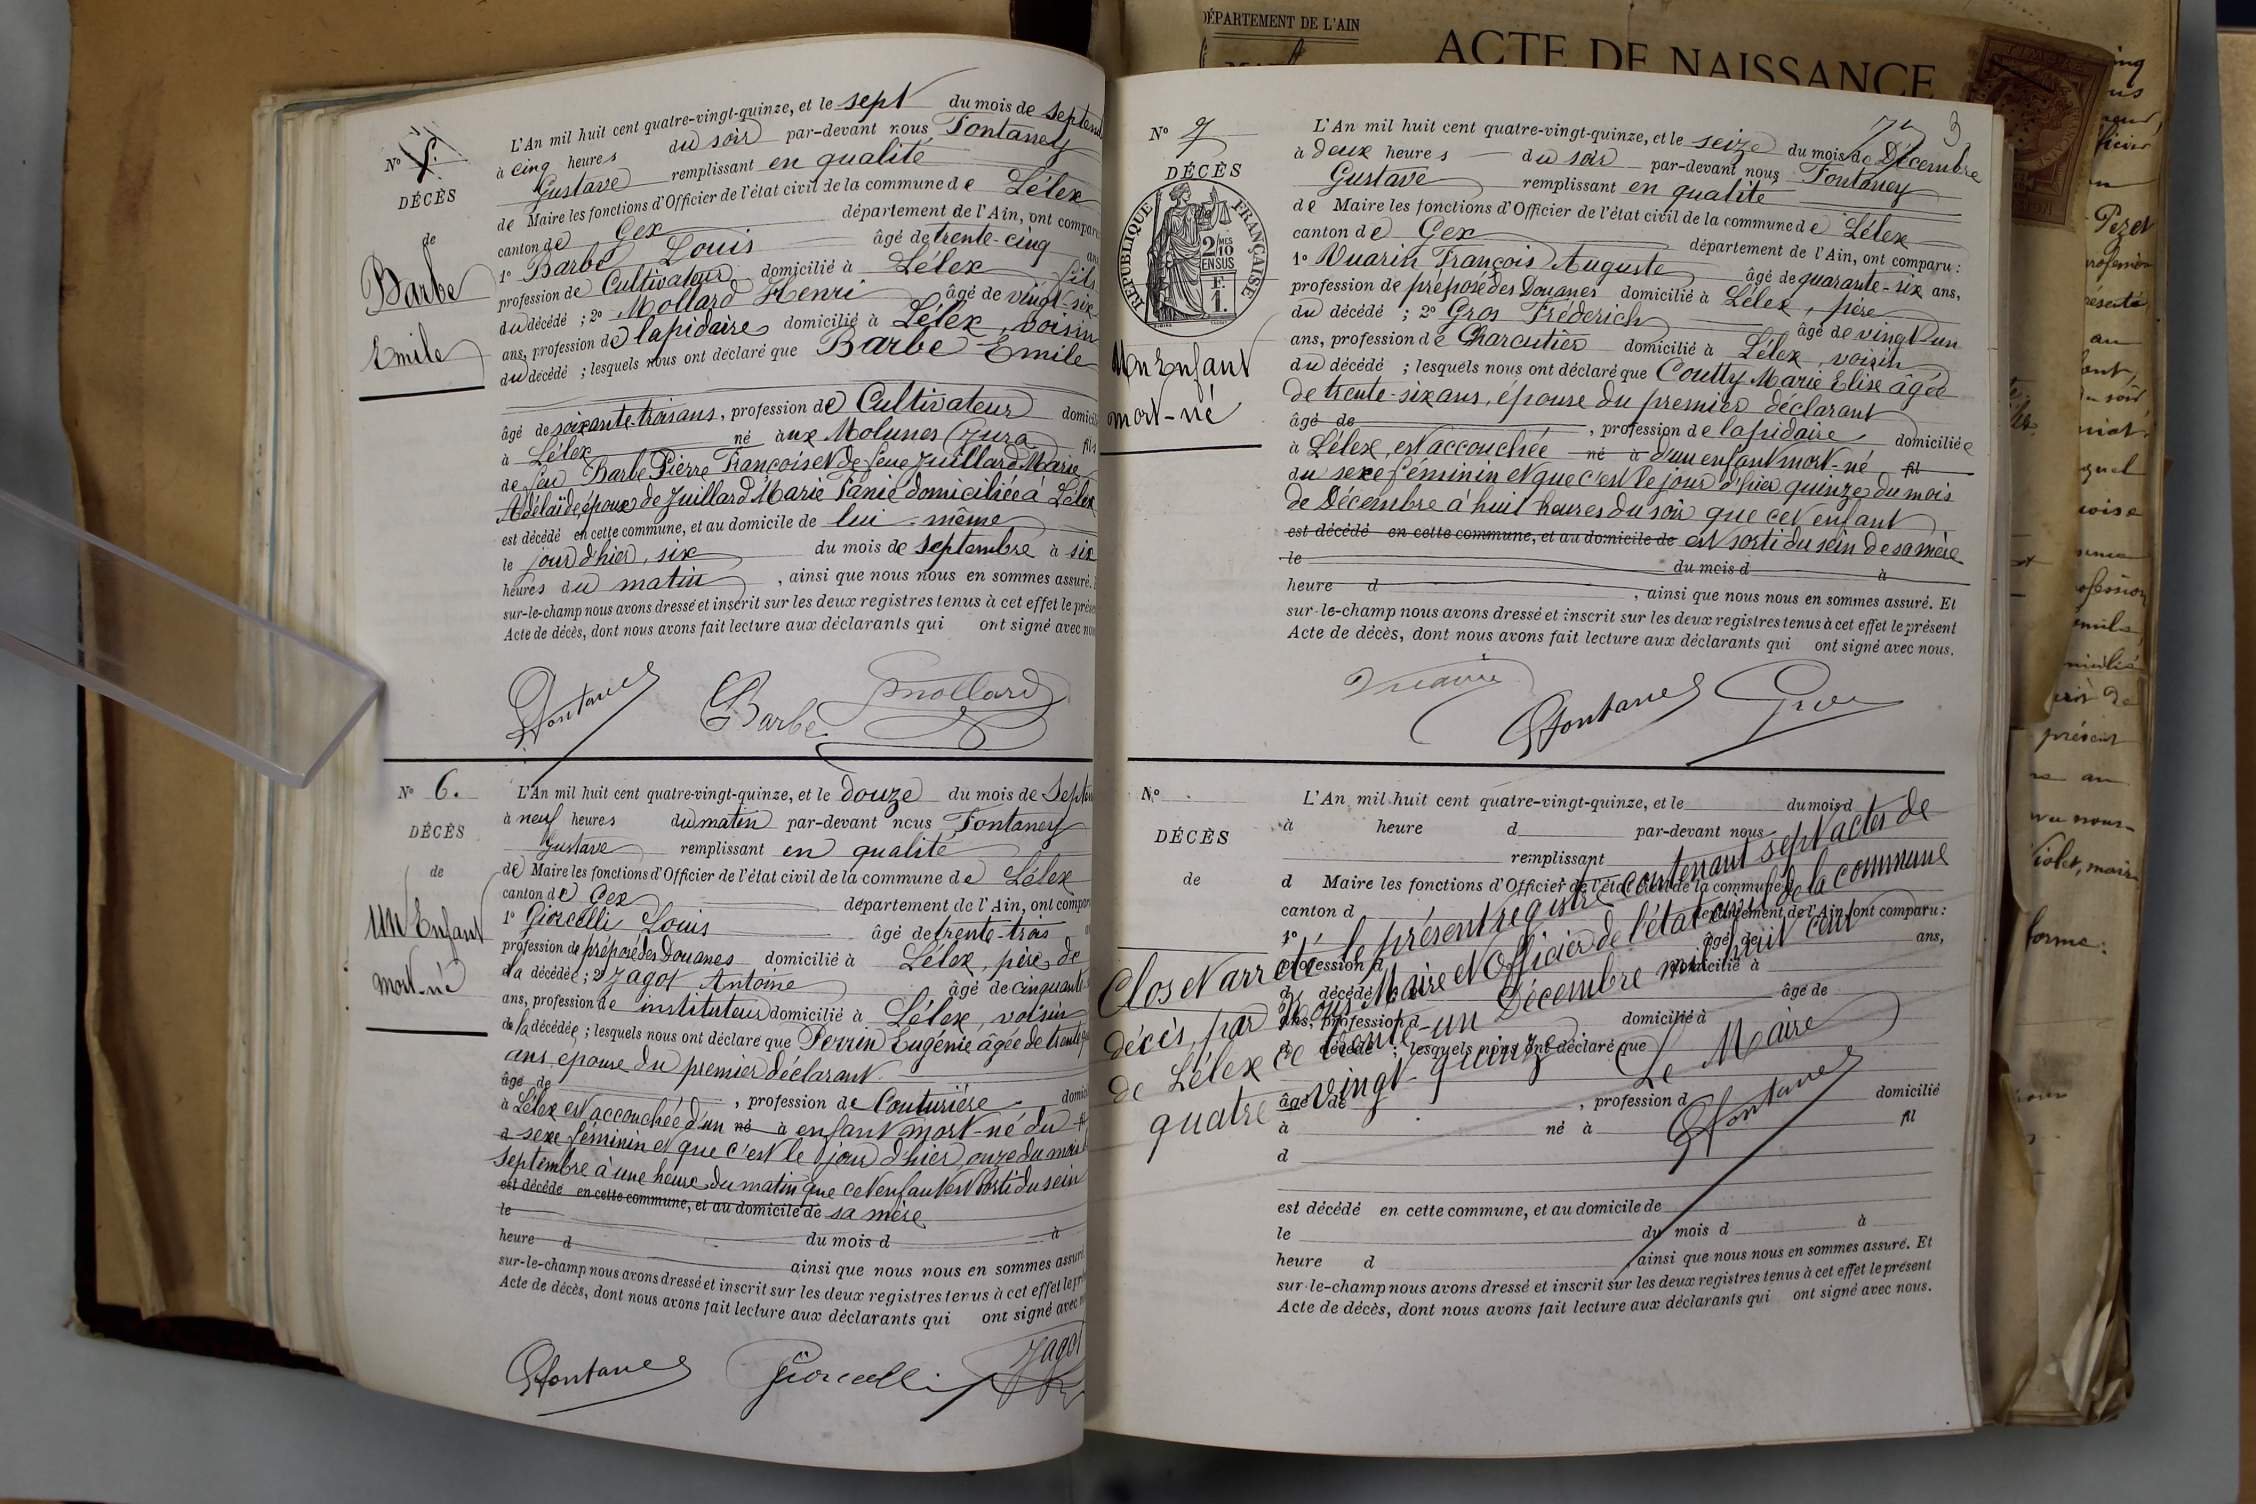 N° 5.
DÉCÈS
de
Barbe
Emile
L'An mil huit cent quatre-vingt-quinze, et le sept du mois de Septem
à cinq heures du soir par-devant nous Fontaney
Gustave remplissant en qualité
de Maire les fonctions d'Officier de l'état civil de la commune de Lélex
canton de Gex département de l'Ain, ont compar
1° Barbe Louis âgé de trente-cinq ans
profession de Cultivateur domicilié à Lélex fils
du décédé ; 2° Mollard Henri âgé de vingt-six
ans, profession de lapidaire domicilié à Lélex, voisin
du décédé ; lesquels nous ont déclaré que Barbe Emile
âgé de soixante-trois ans, profession de Cultivateur domicili
à Lélex né aux Molunes (Jura) fils
de feu Barbe Pierre François et de feue Juillard Marie
Adélaïde, époux de Juillard Marie Fanie domiciliée à Lélex
est décédé en cette commune, et au domicile de lui-même
le jour d'hier, six du mois de Septembre à six
heures du matin, ainsi que nous nous en sommes assuré.
sur-le-champ nous avons dressé et inscrit sur les deux registres tenus à cet effet le prése
Acte de décès, dont nous avons fait lecture aux déclarants qui ont signé avec nou
GFontaney Barbe Mollard
N° 6.
DÉCÈS
de
Un Enfant
mort-né
L'An mil huit cent quatre-vingt-quinze, et le douze du mois de Septem
à neuf heures du matin par-devant nous Fontaney
Gustave remplissant en qualité
de Maire les fonctions d'Officier de l'état civil de la commune de Lélex
canton de Gex département de l'Ain, ont compar
1° Giorcelli Louis âgé de trente-trois
profession de préposé des Douanes domicilié à Lélex, père de
la décédée ; 2° Jagot Antoine âgé de cinquante
ans, profession de instituteur domicilié à Lélex, voisin
de la décédée ; lesquels nous ont déclaré que Perrin Eugénie âgée de trente
ans, épouse du premier déclarant
âgé de , profession de Couturière domici
à Lélex est accouchée d'un né à enfant mort-né du
d sexe féminin et que c'est le jour d'hier, onze du mois
Septembre à une heure du matin que cet enfant est sorti du sein
est décédé en cette commune, et au domicile de sa mère
le du mois d à
heure d ainsi que nous nous en sommes assuré
sur-le-champ nous avons dressé et inscrit sur les deux registres tenus à cet effet le pré
Acte de décès, dont nous avons fait lecture aux déclarants qui ont signé avec
GFontaney Giorcelli Jagot
DÉPARTEMENT DE L'AIN
ACTE DE NAISSANCE
3
N° 7
DÉCÈS
RÉPUBLIQUE FRANÇAISE
2/10 MES EN SUS
1 F.
Un Enfant
mort-né
L'An mil huit cent quatre-vingt-quinze, et le seize du mois de Décembre
à deux heures du soir par-devant nous Fontaney
Gustave remplissant en qualité
de Maire les fonctions d'Officier de l'état civil de la commune de Lélex
canton de Gex département de l'Ain, ont comparu :
1° Vuarin François Auguste âgé de quarante-six ans,
profession de préposé des Douanes domicilié à Lélex, père
du décédé ; 2° Gros Fréderich âgé de vingt un
ans, profession de Charcutier domicilié à Lélex, voisin
du décédé ; lesquels nous ont déclaré que Coutty Marie Elise âgée
de trente-six ans, épouse du premier déclarant
âgé de , profession de lapidaire domiciliée
à Lélex, est accouchée né à d'un enfant mort-né fil
du sexe féminin et que c'est le jour d'hier quinze du mois
de Décembre à huit heures du soir que cet enfant
est décédé en cette commune, et au domicile de est sorti du sein de sa mère
le du mois d à
heure d , ainsi que nous nous en sommes assuré. Et
sur-le-champ nous avons dressé et inscrit sur les deux registres tenus à cet effet le présent
Acte de décès, dont nous avons fait lecture aux déclarants qui ont signé avec nous.
Vuarin GFontaney Gros
N°
DÉCÈS
de
L'An mil huit cent quatre-vingt-quinze, et le du mois d
à heure d par-devant nous
remplissant
d Maire les fonctions d'Officier de l'état civil de la commune d
canton d département de l'Ain, ont comparu :
1° âgé de ans,
profession d domicilié à
d décédé ; 2° âgé de
ans, profession d domicilié à
d décédé ; lesquels nous ont déclaré que
âgé de , profession d domicilié
à né à fil
d
est décédé en cette commune, et au domicile de
le du mois d à
heure d , ainsi que nous nous en sommes assuré. Et
sur-le-champ nous avons dressé et inscrit sur les deux registres tenus à cet effet le présent
Acte de décès, dont nous avons fait lecture aux déclarants qui ont signé avec nous.
Clos et arrêté le présent registre contenant sept actes de
décès, par Nous, Maire et Officier de l'état civil de la commune
de Lélex ce trente-un Décembre mil huit cent
quatre-vingt-quinze.
Le Maire
GFontaney